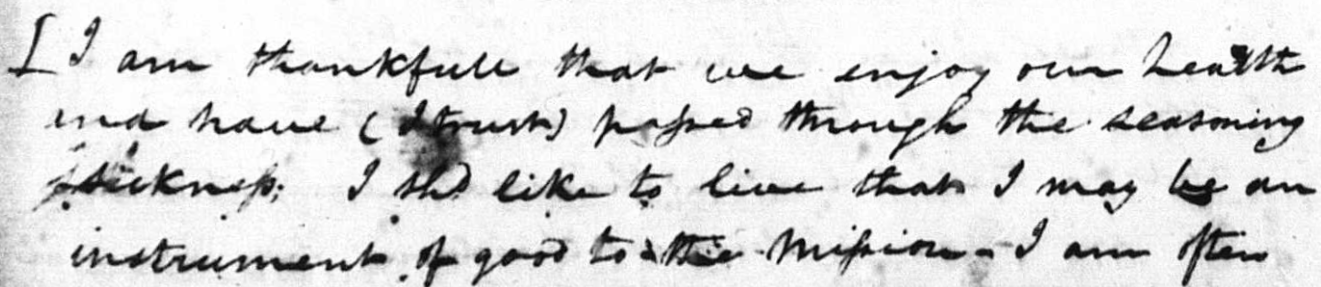 [ I am thankfull that we enjoy our health
and have (I trust) passed through the seasoning
sickness; I shd like to live that I may be an
instrument of good to the Mission - I am often